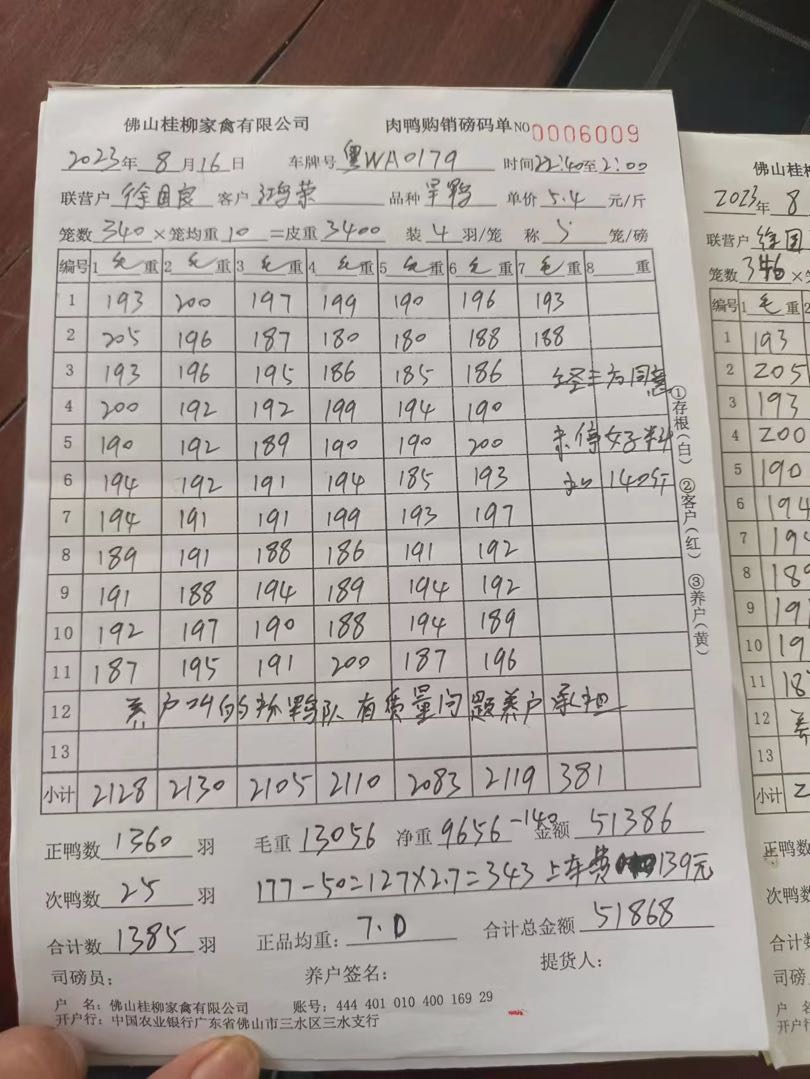 佛山桂柳家禽有限公司 肉鸭购销磅码单 NO 0006009
2023年 8月16日 车牌号 粤WA0179 时间22:40至2:00
联营户 徐国良 客户 鸿荣 品种 旱鸭 单价 5.4 元/斤
笼数 340 ×笼均重 10 =皮重 3400 装 4 羽/笼 称 5 笼/磅
编号 1 毛 重 2 毛 重 3 毛 重 4 毛 重 5 毛 重 6 毛 重 7 毛 重 8 重
1 193 200 197 199 190 196 193
2 205 196 187 180 180 188 188
3 193 196 195 186 185 186 经三方同意
4 200 192 192 199 194 190
5 190 192 189 190 190 200 未停好料
6 194 192 191 194 185 193 扣 140斤
7 194 191 191 199 193 197
8 189 191 188 186 191 192
9 191 188 194 189 194 192
10 192 197 190 188 194 189
11 187 195 191 200 187 196
12 养户叫的抓鸭队有质量问题养户承担
13
小计 2128 2130 2105 2110 2083 2119 381
①存根(白) ②客户(红) ③养户(黄)
正鸭数 1360 羽 毛重 13056 净重 9656-140 金额 51386
次鸭数 25 羽 177-50=127×2.7=343 上车费 139元
合计数 1385 羽 正品均重: 7.0 合计总金额 51868
司磅员: 养户签名: 提货人:
户 名: 佛山桂柳家禽有限公司 账号: 444 401 010 400 169 29
开户行: 中国农业银行广东省佛山市三水区三水支行
佛山桂
2023年 8
联营户 徐国
笼数 ×笼
编号 1 毛 重
1 193
2 205
3 193
4 200
5 190
6 194
7
8
9
10
11
12 养
13
小计
正鸭数
次鸭数
合计
司磅